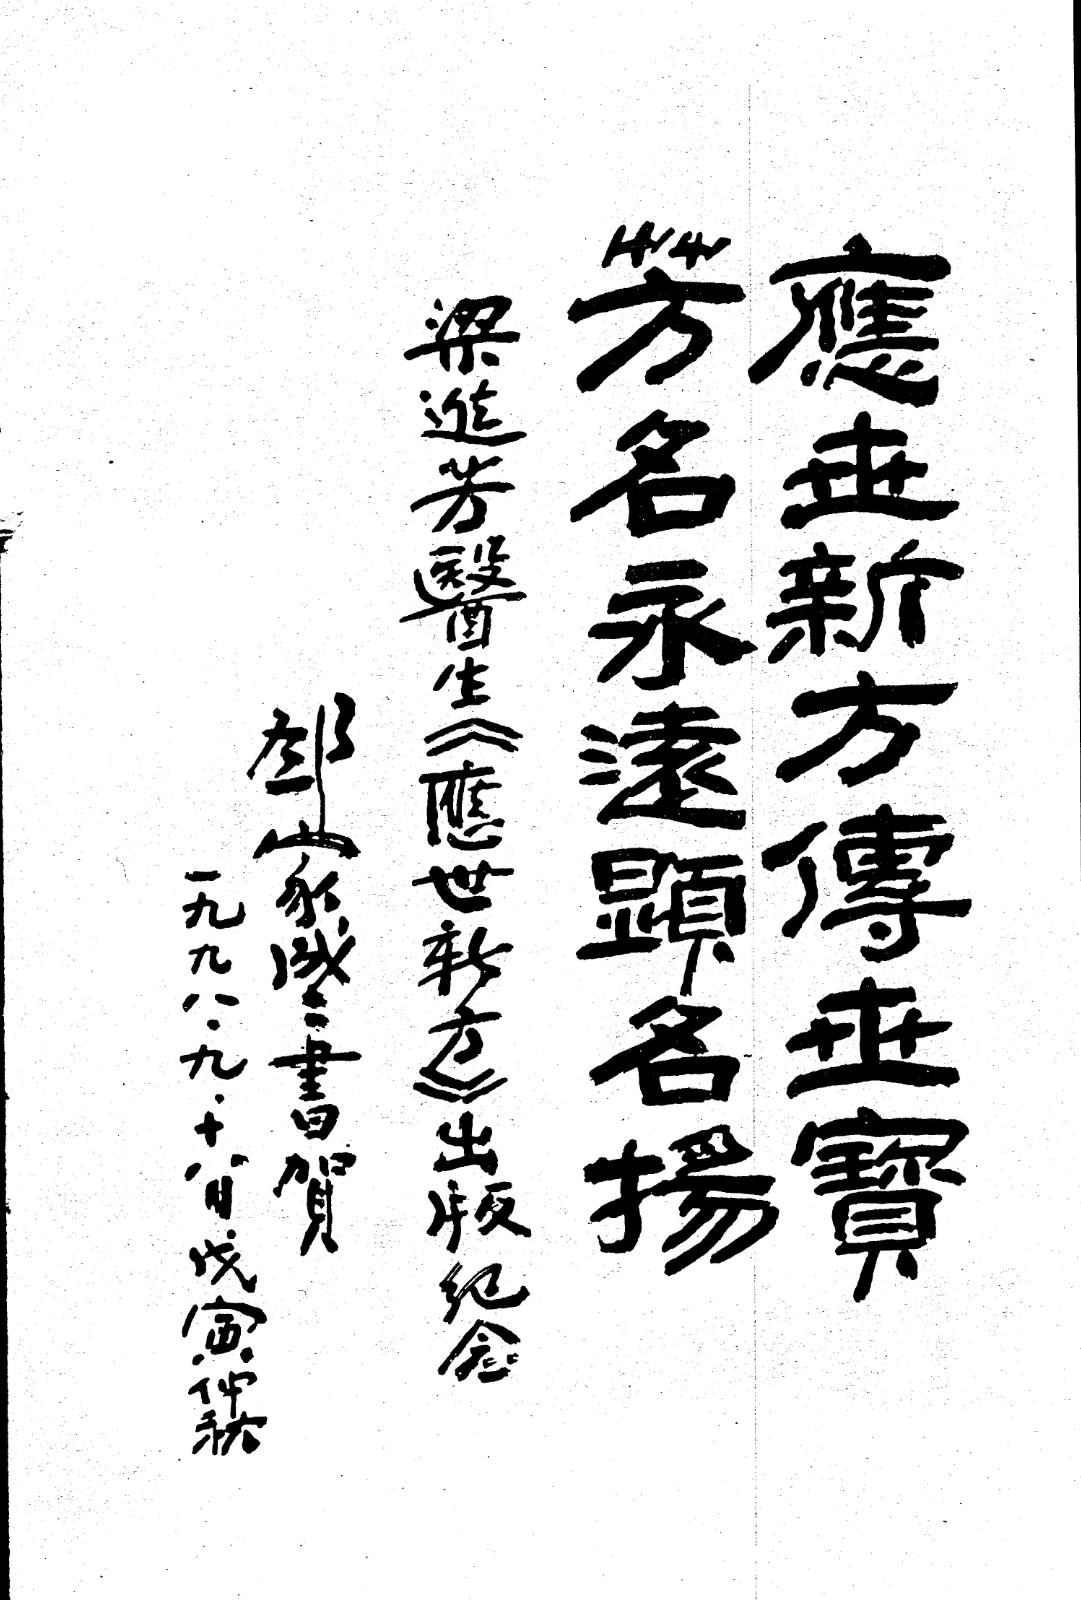 應世新方傳世寶
芳名永遠顯名揚
梁進芳醫生《應世新方》出版紀念
家書賀
一九九八.九.十八日戊寅仲秋